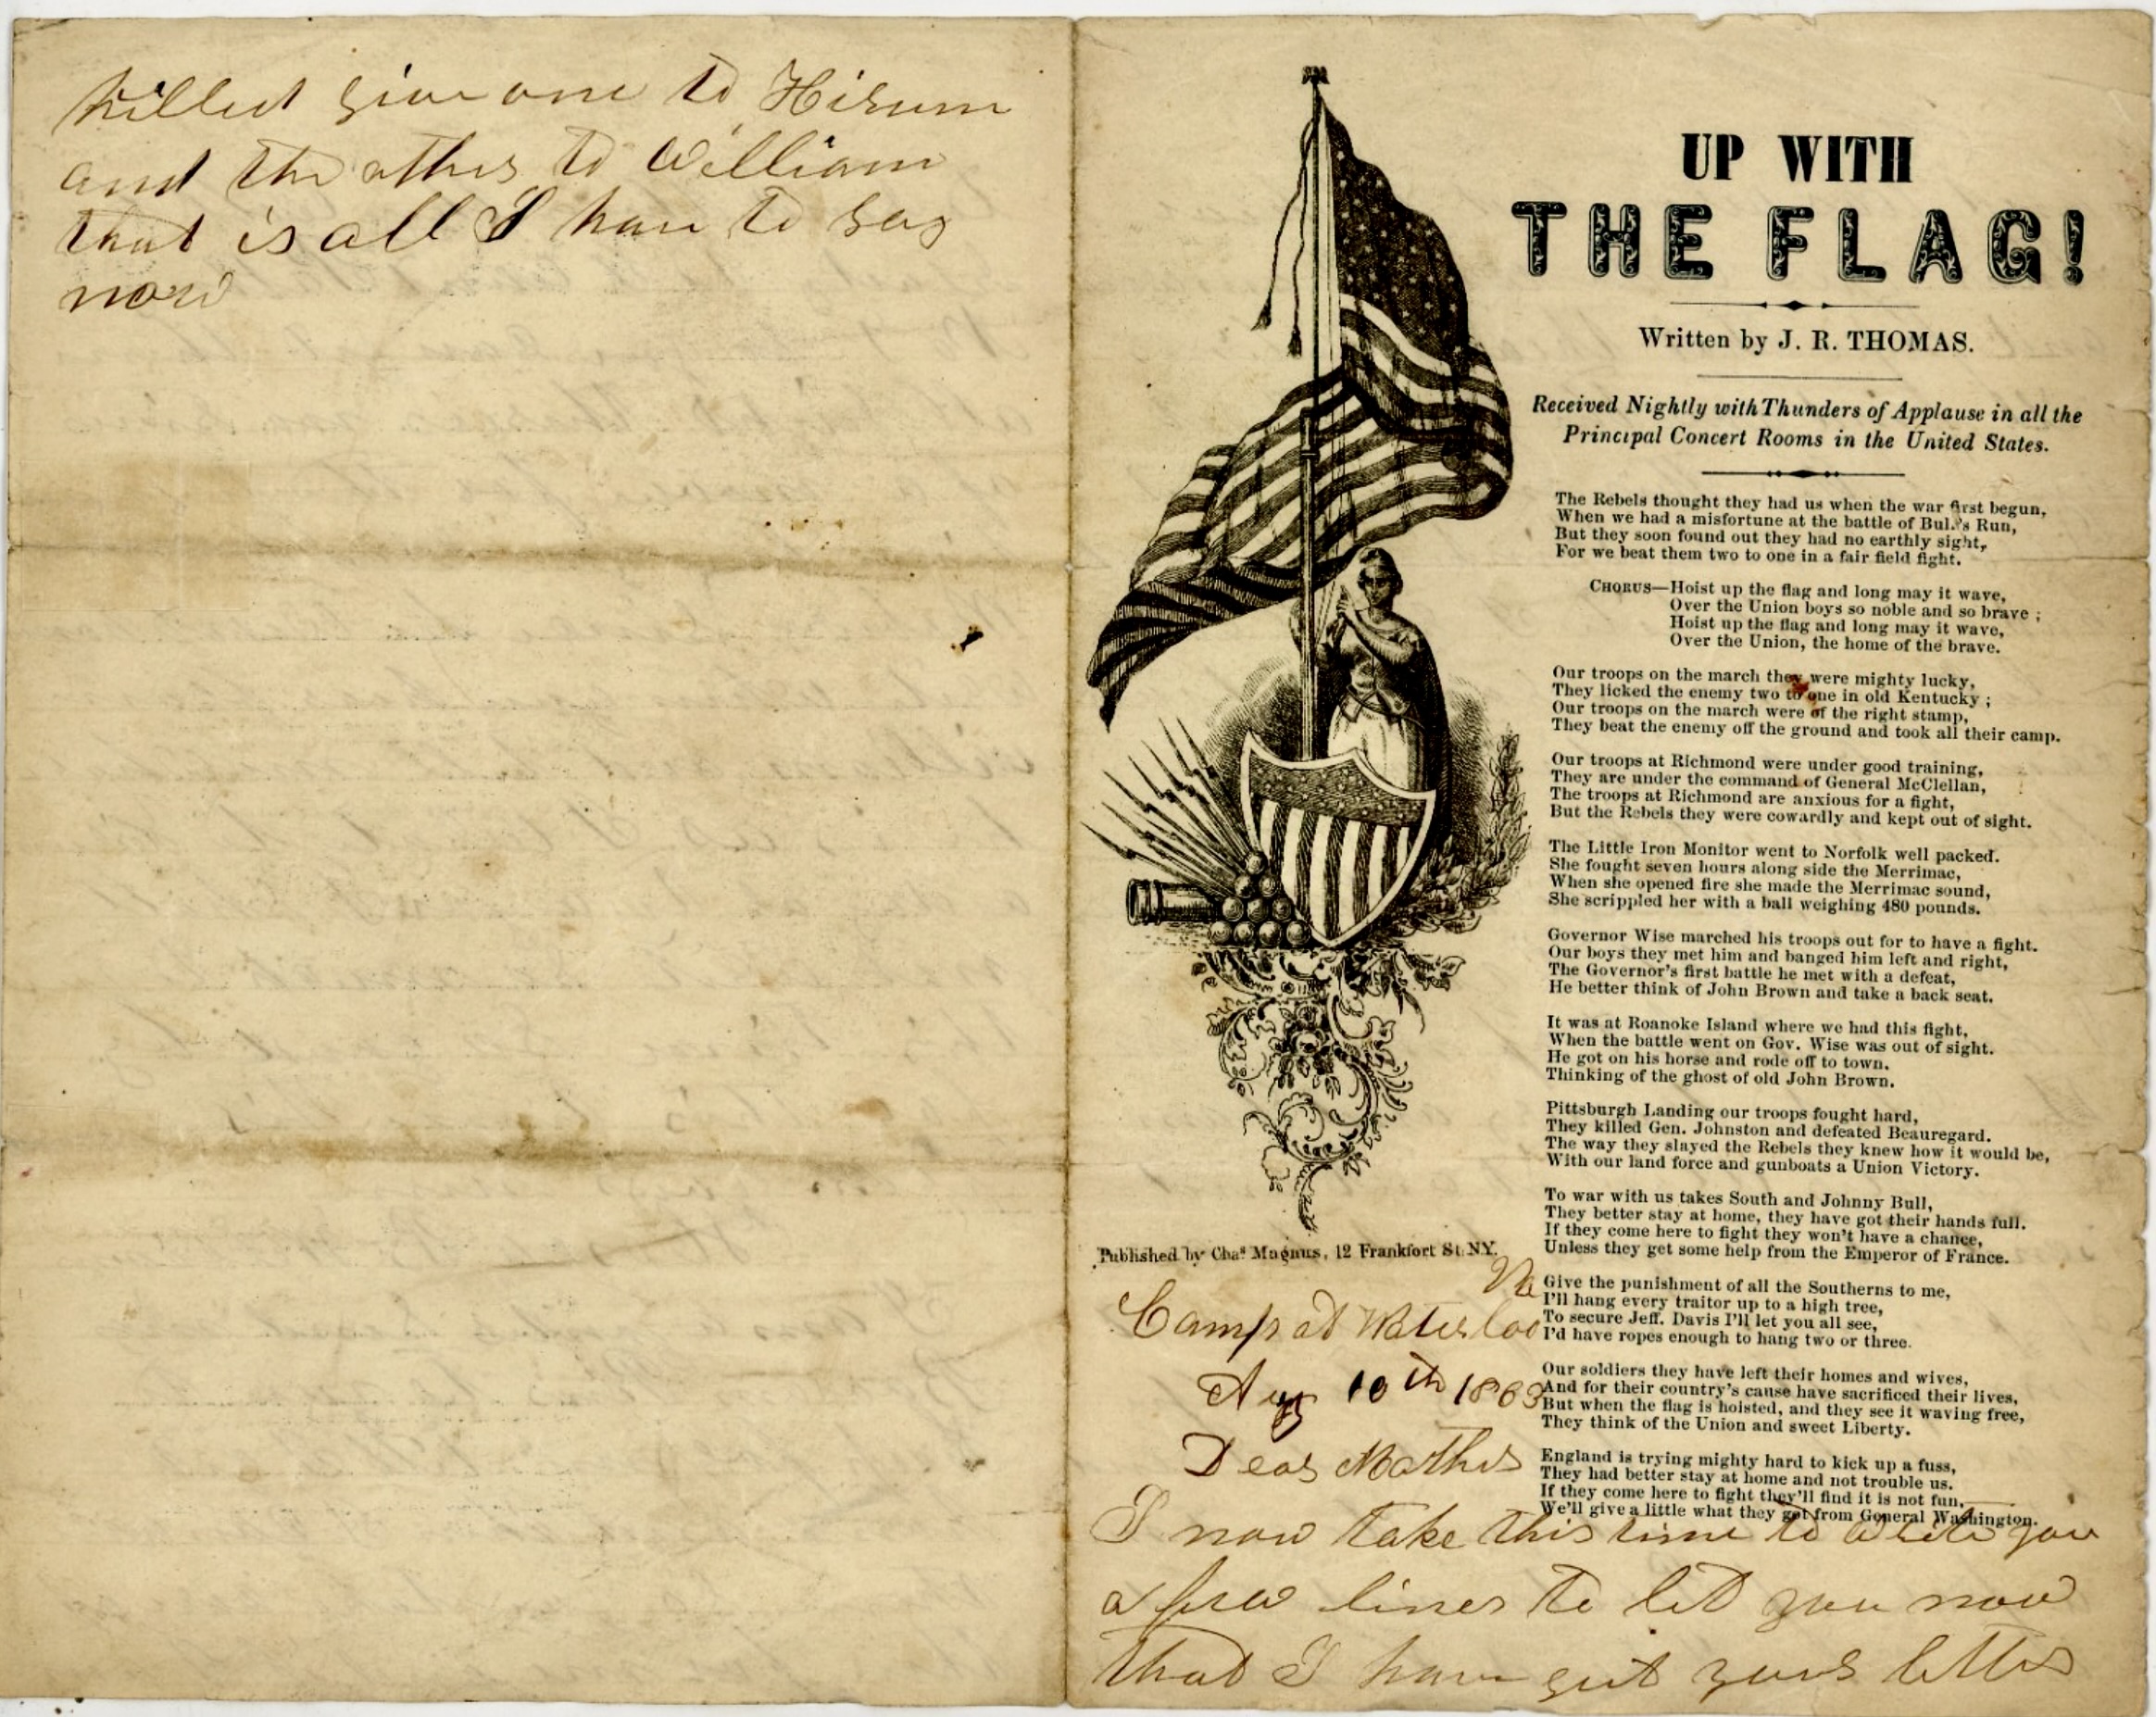 killed give one to Hirum
and the other to William
that is all I have to say
now
UP WITH
THE FLAG!
Written by J. R. THOMAS.
Received Nightly with Thunders of Applause in all the
Principal Concert Rooms in the United States.
The Rebels thought they had us when the war first begun,
When we had a misfortune at the battle of Bull's Run,
But they soon found out they had no earthly sight,
For we beat them two to one in a fair field fight.
CHORUS—Hoist up the flag and long may it wave,
Over the Union boys so noble and so brave ;
Hoist up the flag and long may it wave,
Over the Union, the home of the brave.
Our troops on the march they were mighty lucky,
They licked the enemy two to one in old Kentucky ;
Our troops on the march were of the right stamp,
They beat the enemy off the ground and took all their camp.
Our troops at Richmond were under good training,
They are under the command of General McClellan,
The troops at Richmond are anxious for a fight,
But the Rebels they were cowardly and kept out of sight.
The Little Iron Monitor went to Norfolk well packed.
She fought seven hours along side the Merrimac,
When she opened fire she made the Merrimac sound,
She scrippled her with a ball weighing 480 pounds.
Governor Wise marched his troops out for to have a fight.
Our boys they met him and banged him left and right,
The Governor's first battle he met with a defeat,
He better think of John Brown and take a back seat.
It was at Roanoke Island where we had this fight,
When the battle went on Gov. Wise was out of sight.
He got on his horse and rode off to town.
Thinking of the ghost of old John Brown.
Pittsburgh Landing our troops fought hard,
They killed Gen. Johnston and defeated Beauregard.
The way they slayed the Rebels they knew how it would be,
With our land force and gunboats a Union Victory.
To war with us takes South and Johnny Bull,
They better stay at home, they have got their hands full.
If they come here to fight they won't have a chance,
Unless they get some help from the Emperor of France.
Give the punishment of all the Southerns to me,
I'll hang every traitor up to a high tree,
To secure Jeff. Davis I'll let you all see,
I'd have ropes enough to hang two or three.
Our soldiers they have left their homes and wives,
And for their country's cause have sacrificed their lives,
But when the flag is hoisted, and they see it waving free,
They think of the Union and sweet Liberty.
England is trying mighty hard to kick up a fuss,
They had better stay at home and not trouble us.
If they come here to fight they'll find it is not fun,
We'll give a little what they got from General Washington.
Published by Chas Magnus, 12 Frankfort St. NY.
Va
Camp at Waterloo
Aug 10th 1863
Dear Mother
I now take this time to write you
a few lines to let you now
that I have got your letter